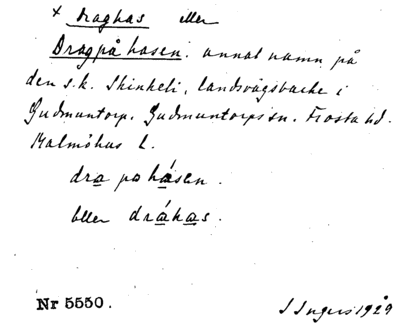 × Draghas eller
Dragpåhasen. annat namn på
den s.k. Skinkeli, landsvägsbacke i
Gudmuntorp. Gudmuntorps sn. Frosta hd.
Malmöhus l.
dra pa hásen.
eller dráhas.
Nr 5550.
I Ingers 1929